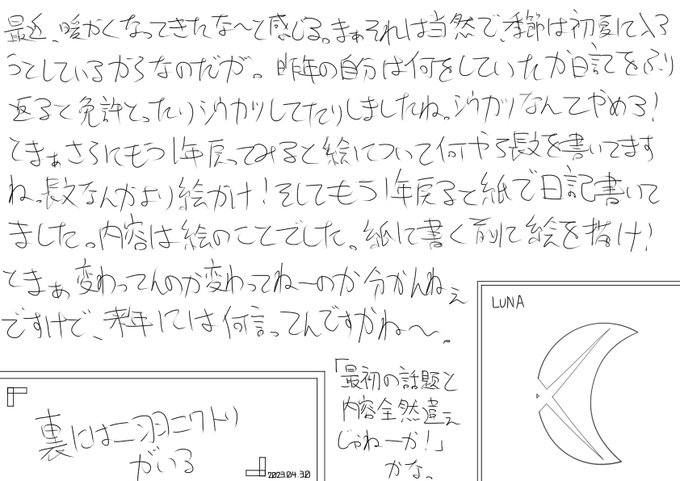 最近、暖かくなってきたな〜と感じる。まぁそれは当然で、季節は初夏に入ろ
うとしているからなのだが。昨年の自分は何をしていたか日記をふり
返ると免許とったりジウカツしてたりしましたね。ジウカツなんてやめろ！
てまぁさらにもう1年戻ってみると絵について何やら長文を書いてます
ね。長文なんかより絵かけ！そしてもう1年戻ると紙で日記書いて
ました。内容は絵のことでした。紙に書く前に絵を描け！
てまぁ変わってんのか変わってねーのか分かんねぇ
ですけど、来年には何言ってんですかね〜。
「最初の話題と
内容全然違ぇ
じゃねーか！」
かな。
裏には二羽ニワトリ
がいる
2023.04.30
LUNA